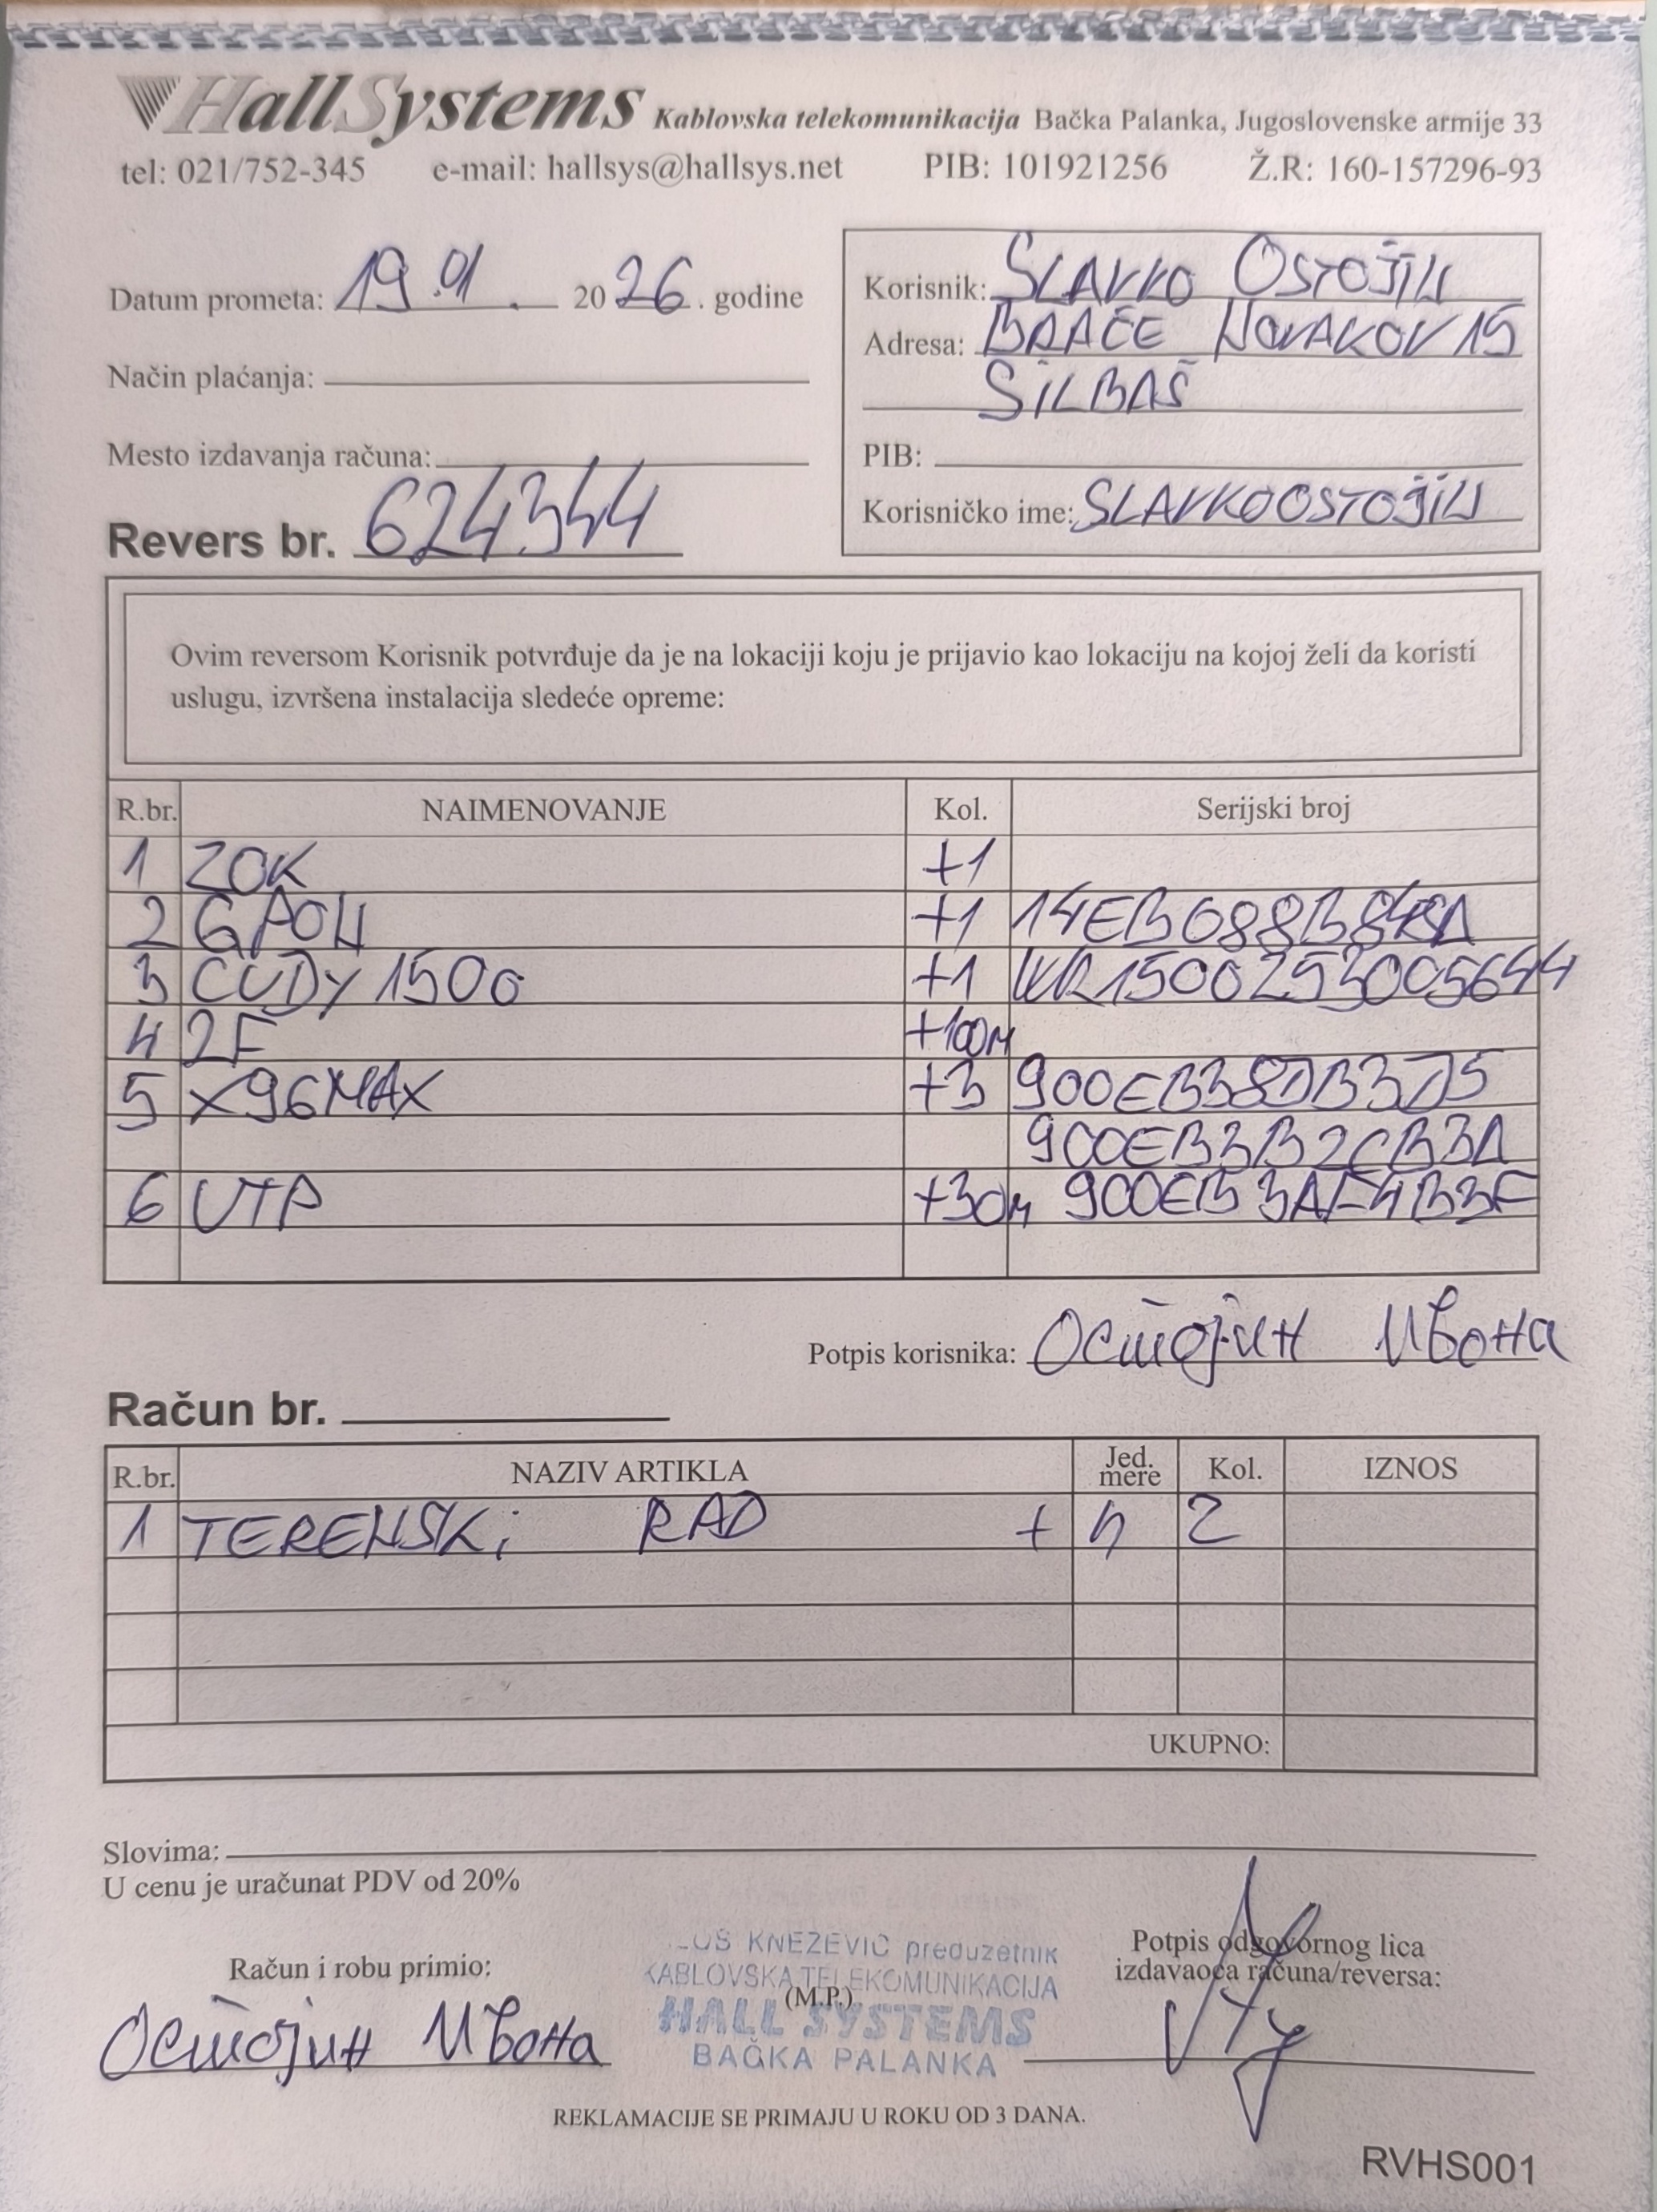 HallSystems Kablovska telekomunikacija Bačka Palanka, Jugoslovenske armije 33
tel: 021/752-345 e-mail: hallsys@hallsys.net PIB: 101921256 Ž.R: 160-157296-93
Datum prometa: 19.01. 2026. godine
Način plaćanja:
Mesto izdavanja računa:
Revers br. 624344
Korisnik: SLAVKO OSTOJIN
Adresa: BRAĆE NOVAKOV 15
SILBAŠ
PIB:
Korisničko ime: SLAVKOOSTOJIN
Ovim reversom Korisnik potvrđuje da je na lokaciji koju je prijavio kao lokaciju na kojoj želi da koristi
uslugu, izvršena instalacija sledeće opreme:
R.br. NAIMENOVANJE Kol. Serijski broj
1 ZOK +1
2 GPON +1
3 CUDY 1500 +1 WR1500253005644
4 2F +100M
5 X96MAX +3 900EB38DB3D5
900EB3B2CB3A
6 UTP +30M 900EB3AF4B3F
Potpis korisnika: Остојин Ивона
Račun br.
R.br. NAZIV ARTIKLA Jed. mere Kol. IZNOS
1 TERENSKi RAD + h 2
UKUPNO:
Slovima:
U cenu je uračunat PDV od 20%
Račun i robu primio:
Остојин Ивона
KNEŽEVIĆ preduzetnik
KABLOVSKA TELEKOMUNIKACIJA
(M.P.)
HALL SYSTEMS
BAČKA PALANKA
Potpis odgovornog lica
izdavaoca računa/reversa:
REKLAMACIJE SE PRIMAJU U ROKU OD 3 DANA.
RVHS001